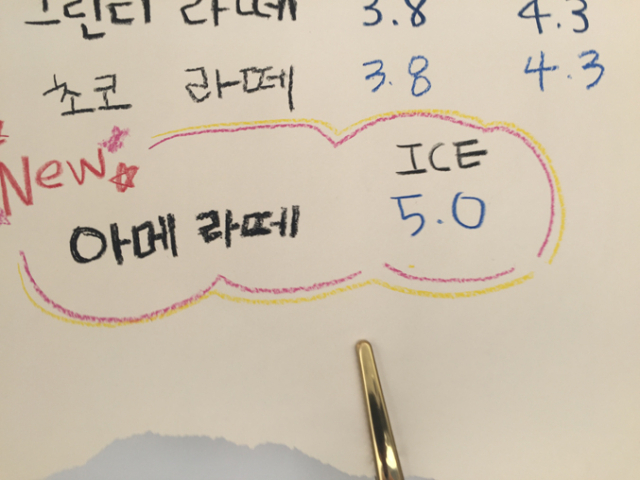 그린티 라떼 3.8 4.3
초코 라떼 3.8 4.3
New
ICE
아메 라떼 5.0